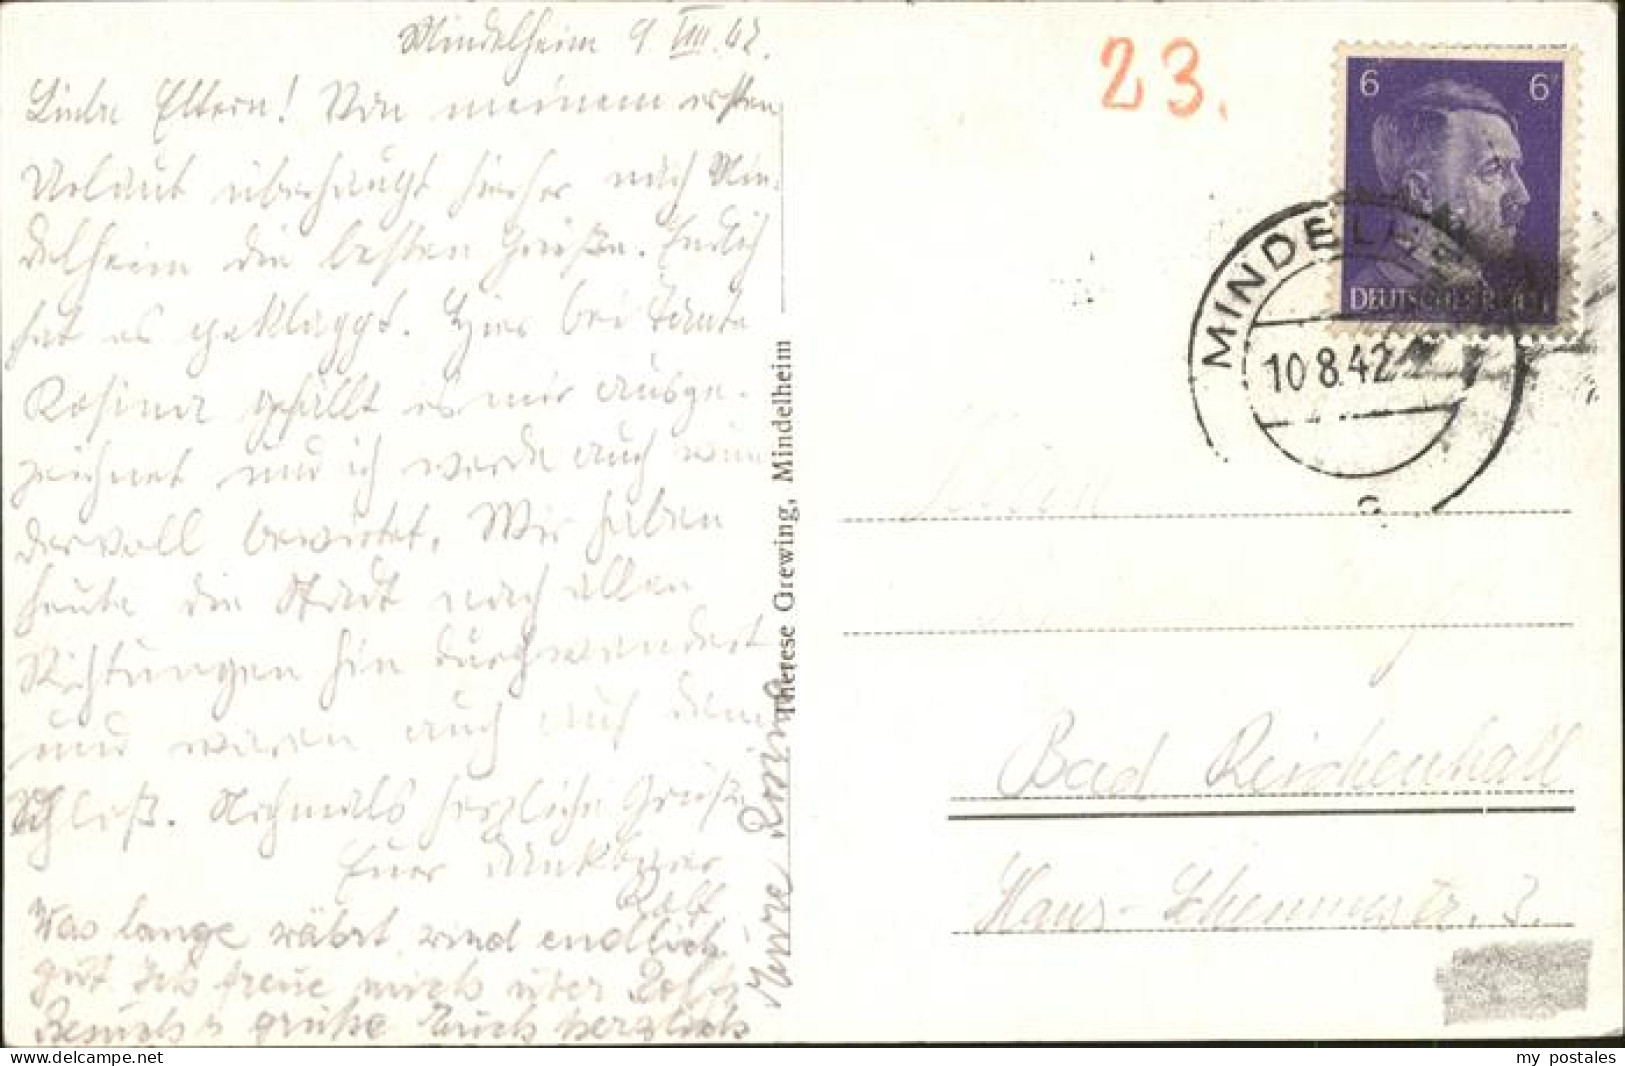 Mindelheim 9. VIII. 42.
Liebe Eltern! Von meinem ersten
Urlaub überhaupt hierher nach Min-
delheim die besten Grüße. Endlich
hat es geklappt. Hier bei Tante
Rosina gefällt es mir ausge-
zeichnet und ich werde auch wun-
dervoll bewirtet. Wir haben
heute die Stadt nach allen
Richtungen hin durchwandert
und waren auch auf dem
Schloß. Nochmals herzliche Grüße
Euer dankbarer
Rolf
Was lange währt wird endlich
gut Ich freue mich über Rolfs
Besuch u grüße Euch herzlichst
Eure Rosina
Therese Grewing, Mindelheim
23.
6 6
DEUTSCHES REICH
MINDELHEIM
10.8.42
c
Bad Reichenhall
Hans-Schemmstr. 3.
delcampe.net
my postales